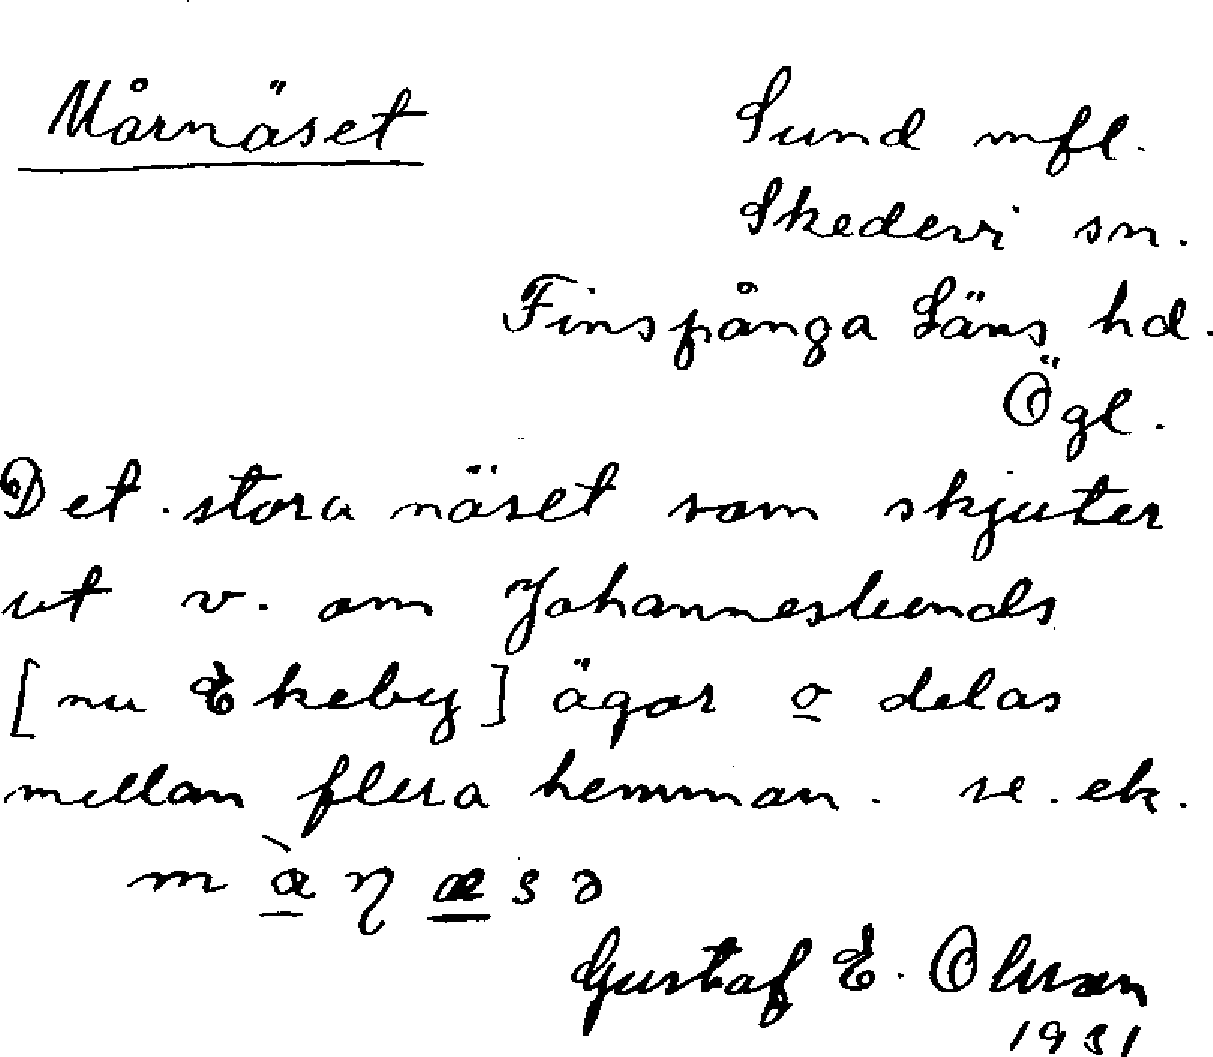 Mårnäset
Sund mfl.
Skedevi sn.
Finspånga Läns hd.
Ögl.
Det stora näset som skjuter
ut v. om Johanneslunds
[nu Ekeby] ägor o delas
mellan flera hemman. se. ek.
Gustaf E. Olsson
1931